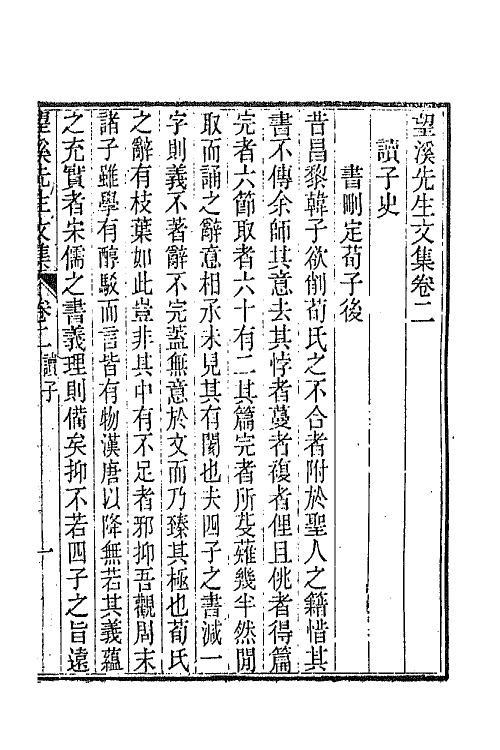 望溪先生文集卷二
讀子史
書刪定荀子後
昔昌黎韓子欲削荀氏之不合者附於聖人之籍惜其
書不傳余師其意去其悖者蔓者複者俚且佻者得篇
完者六節取者六十有二其篇完者所芟薙幾半然間
取而誦之辭意相承未見其有闕也夫四子之書減一
字則義不著辭不完蓋無意於文而乃臻其極也荀氏
之辭有枝葉如此豈非其中有不足者邪抑吾觀周末
諸子雖學有醇駁而言皆有物漢唐以降無若其義蘊
之充實者宋儒之書義理則備矣抑不若四子之旨遠
望溪先生文集 卷二 讀子 一